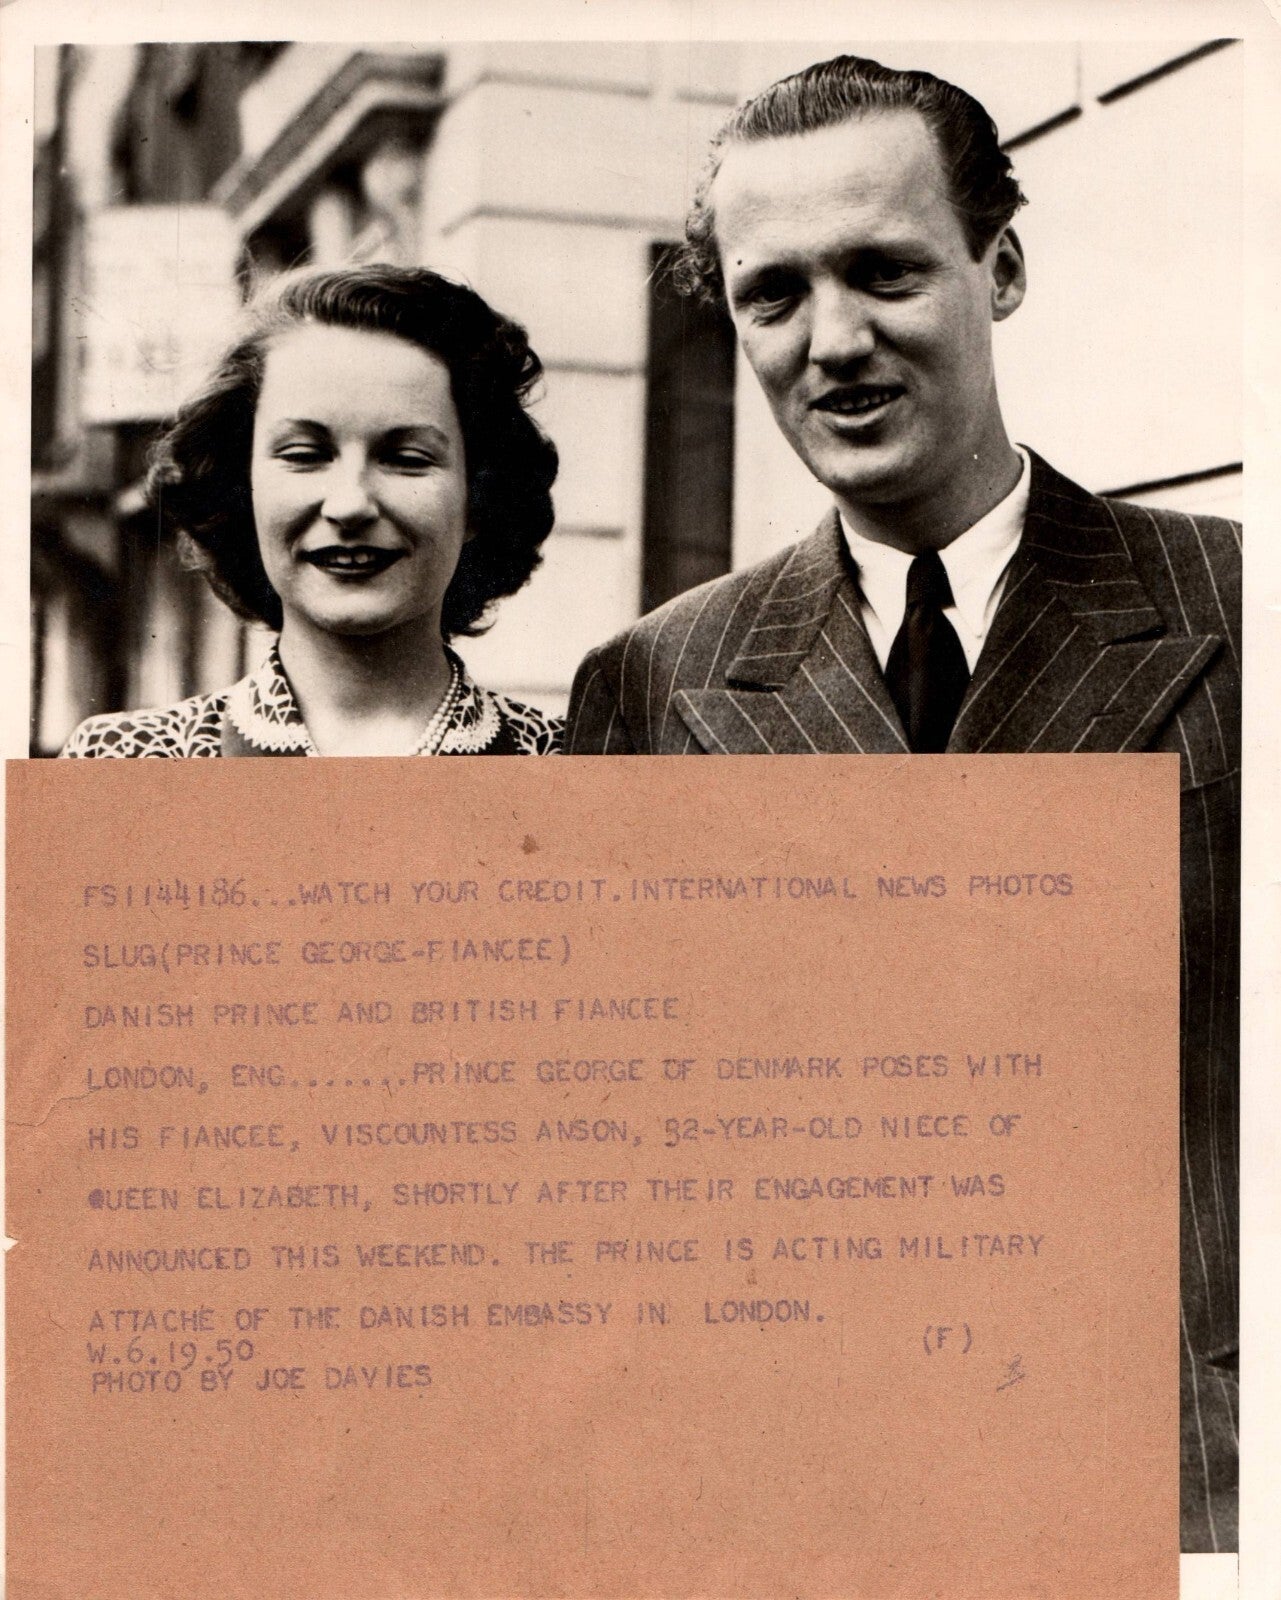 FS1144186...WATCH YOUR CREDIT.INTERNATIONAL NEWS PHOTOS
SLUG(PRINCE GEORGE-FIANCEE)
DANISH PRINCE AND BRITISH FIANCEE
LONDON, ENG.......PRINCE GEORGE OF DENMARK POSES WITH
HIS FIANCEE, VISCOUNTESS ANSON, 32-YEAR-OLD NIECE OF
QUEEN ELIZABETH, SHORTLY AFTER THEIR ENGAGEMENT WAS
ANNOUNCED THIS WEEKEND. THE PRINCE IS ACTING MILITARY
ATTACHE OF THE DANISH EMBASSY IN LONDON.
W.6.19.50 (F)
PHOTO BY JOE DAVIES